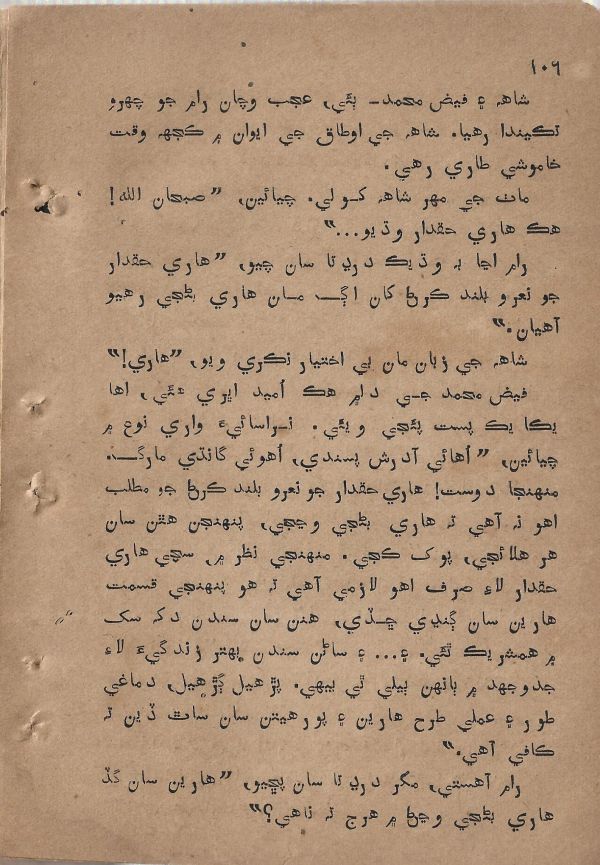 ١٠٦
شاهہ ۽ فيض محمد۔ ٻئي، عجب وچان رام جو چهرو
تڪيندا رهيا. شاهہ جي اوطاق جي ايوان ۾ ڪجهہ وقت
خاموشي طاري رهي.
مات جي مهر شاهہ کولي. چيائين، ”صبحان الله!
هڪ هاري حقدار وڌيو...“
رام اڃا بہ وڌيڪ درڍتا سان چيو، ”هاري حقدار
جو نعرو بلند ڪرڻ کان اڳ مان هاري بڻجي رهيو
آهيان.“
شاهہ جي زبان مان بي اختيار نڪري ويو، ”هاري!“
فيض محمد جي دل ۾ هڪ اُميد اڀري هئي، اها
يڪايڪ پست پئجي ويئي. نراسائيءَ واري نوع ۾
چيائين، ”اُهائي آدرش پسندي، اُهوئي گانڌي مارگ.
منهنجا دوست! هاري حقدار جو نعرو بلند ڪرڻ جو مطلب
اهو نہ آهي تہ هاري بڻجي وڃجي، پنهنجن هٿن سان
هر هلائجي، پوک ڪجي. منهنجي نظر ۾ سچي هاري
حقدار لاءِ صرف اهو لازمي آهي تہ هو پنهنجي قسمت
هارين سان ڳنڍي ڇڏي، هنن سان سندن دک سک
۾ همشريڪ ٿئي. ۽... ۽ ساڻن سندن بهتر زندگيءَ لاءِ
جدوجهد ۾ ٻانهن ٻيلي ٿي بيهي. پڙهيل ڳڙهيل، دماغي
طور ۽ عملي طرح هارين ۽ پورهيتن سان ساٿ ڏين تہ
ڪافي آهي.“
رام آهستي، مگر درڍتا سان پڇيو، ”هارين سان گڏ
هاري بڻجي وڃڻ ۾ هرج تہ ناهي؟“